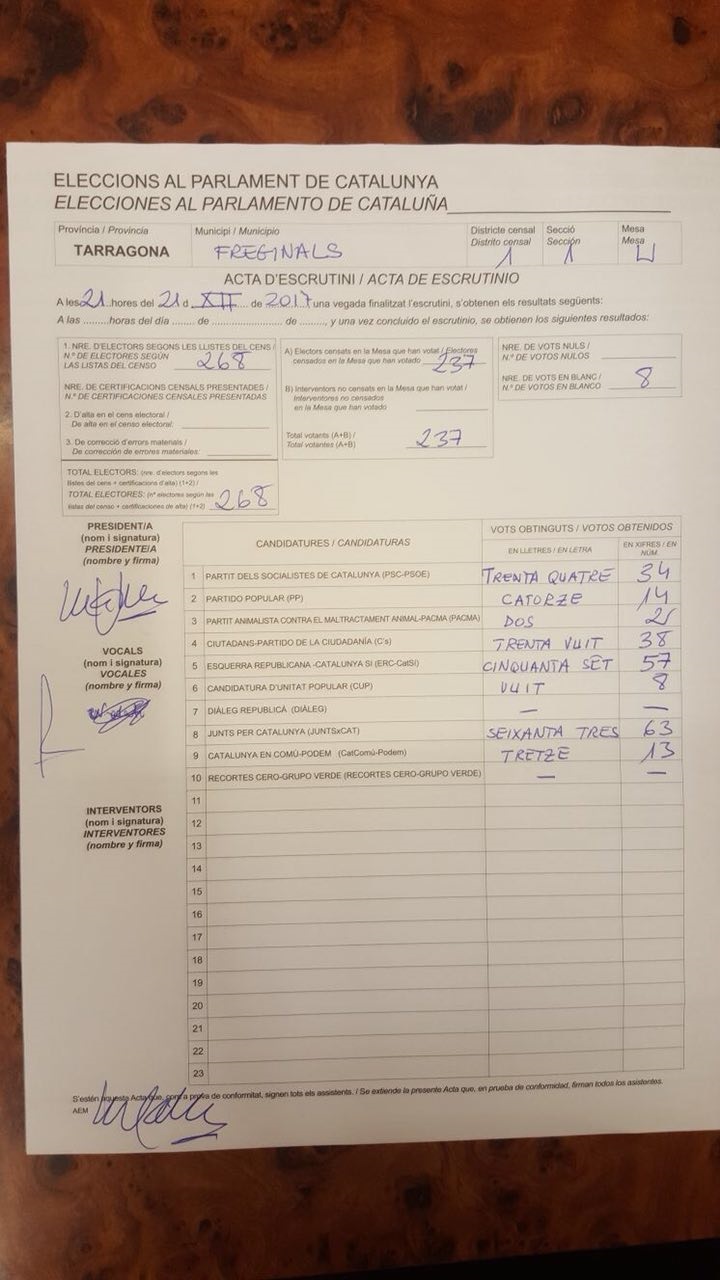 ELECCIONS AL PARLAMENT DE CATALUNYA
ELECCIONES AL PARLAMENTO DE CATALUÑA
Província / Provincia
TARRAGONA
Municipi / Municipio
FREGINALS
Districte censal
Distrito censal
1
Secció
Sección
1
Mesa
Mesa
U
ACTA D'ESCRUTINI / ACTA DE ESCRUTINIO
A les 21 hores del 21 d XII de 2017 una vegada finalitzat l'escrutini, s'obtenen els resultats següents:
A las ......... horas del día ....... de .................... de ........, y una vez concluido el escrutinio, se obtienen los siguientes resultados:
1. NRE. D'ELECTORS SEGONS LES LLISTES DEL CENS /
N.º DE ELECTORES SEGÚN
LAS LISTAS DEL CENSO 268
NRE. DE CERTIFICACIONS CENSALS PRESENTADES /
N.º DE CERTIFICACIONES CENSALES PRESENTADAS
2. D'alta en el cens electoral /
De alta en el censo electoral:
3. De correcció d'errors materials /
De corrección de errores materiales:
TOTAL ELECTORS: (nre. d'electors segons les
llistes del cens + certificacions d'alta) (1+2) /
TOTAL ELECTORES: (nº electores según las
listas del censo + certificaciones de alta) (1+2) 268
A) Electors censats en la Mesa que han votat / Electores
censados en la Mesa que han votado 237
B) Interventors no censats en la Mesa que han votat /
Interventores no censados
en la Mesa que han votado
Total votants (A+B) /
Total votantes (A+B) 237
NRE. DE VOTS NULS /
N.º DE VOTOS NULOS
NRE. DE VOTS EN BLANC /
N.º DE VOTOS EN BLANCO 8
PRESIDENT/A
(nom i signatura)
PRESIDENTE/A
(nombre y firma)
VOCALS
(nom i signatura)
VOCALES
(nombre y firma)
INTERVENTORS
(nom i signatura)
INTERVENTORES
(nombre y firma)
CANDIDATURES / CANDIDATURAS
VOTS OBTINGUTS / VOTOS OBTENIDOS
EN LLETRES / EN LETRA
EN XIFRES / EN
NÚM.
1 PARTIT DELS SOCIALISTES DE CATALUNYA (PSC-PSOE) TRENTA QUATRE 34
2 PARTIDO POPULAR (PP) CATORZE 14
3 PARTIT ANIMALISTA CONTRA EL MALTRACTAMENT ANIMAL-PACMA (PACMA) DOS 2
4 CIUTADANS-PARTIDO DE LA CIUDADANÍA (C's) TRENTA VUIT 38
5 ESQUERRA REPUBLICANA -CATALUNYA SÍ (ERC-CatSí) CINQUANTA SET 57
6 CANDIDATURA D'UNITAT POPULAR (CUP) VUIT 8
7 DIÀLEG REPUBLICÀ (DIÀLEG) — —
8 JUNTS PER CATALUNYA (JUNTSxCAT) SEIXANTA TRES 63
9 CATALUNYA EN COMÚ-PODEM (CatComú-Podem) TRETZE 13
10 RECORTES CERO-GRUPO VERDE (RECORTES CERO-GRUPO VERDE) — —
11
12
13
14
15
16
17
18
19
20
21
22
23
S'estén aquesta Acta que, com a prova de conformitat, signen tots els assistents. / Se extiende la presente Acta que, en prueba de conformidad, firman todos los asistentes.
AEM